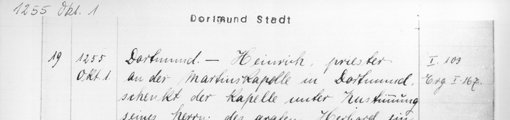 1255 Okt. 1
Dortmund Stadt
19 1255 Dortmund. — Heinrich, priester I 109
Okt. 1 an der Martinskapelle in Dortmund, Erg. I 167.
schenkt der Kapelle unter Zustimmung
seines Herrn, des grafen Herbord für